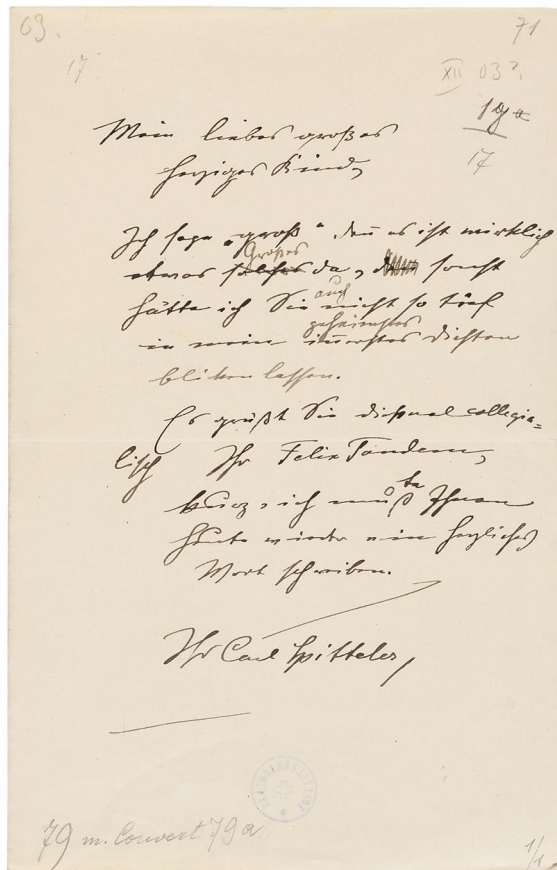 69.
71
17
XII 03?.
19a
17
Mein liebes großes
herziges Kind,
Ich sage „groß“ denn es ist wirklich
Großes
etwas solches da, sonst
auch
hätte ich Sie nicht so tief
geheimstes
in mein innerstes Dichten
blicken lassen.
Es grüßt Sie dießmal collegia=
lisch Ihr Felix Tandem,
te
kurz, ich muß Ihnen
heute wieder ein herzliches
Wort schreiben.
Ihr Carl Spitteler,
79 m. Couvert 79a.
1/1